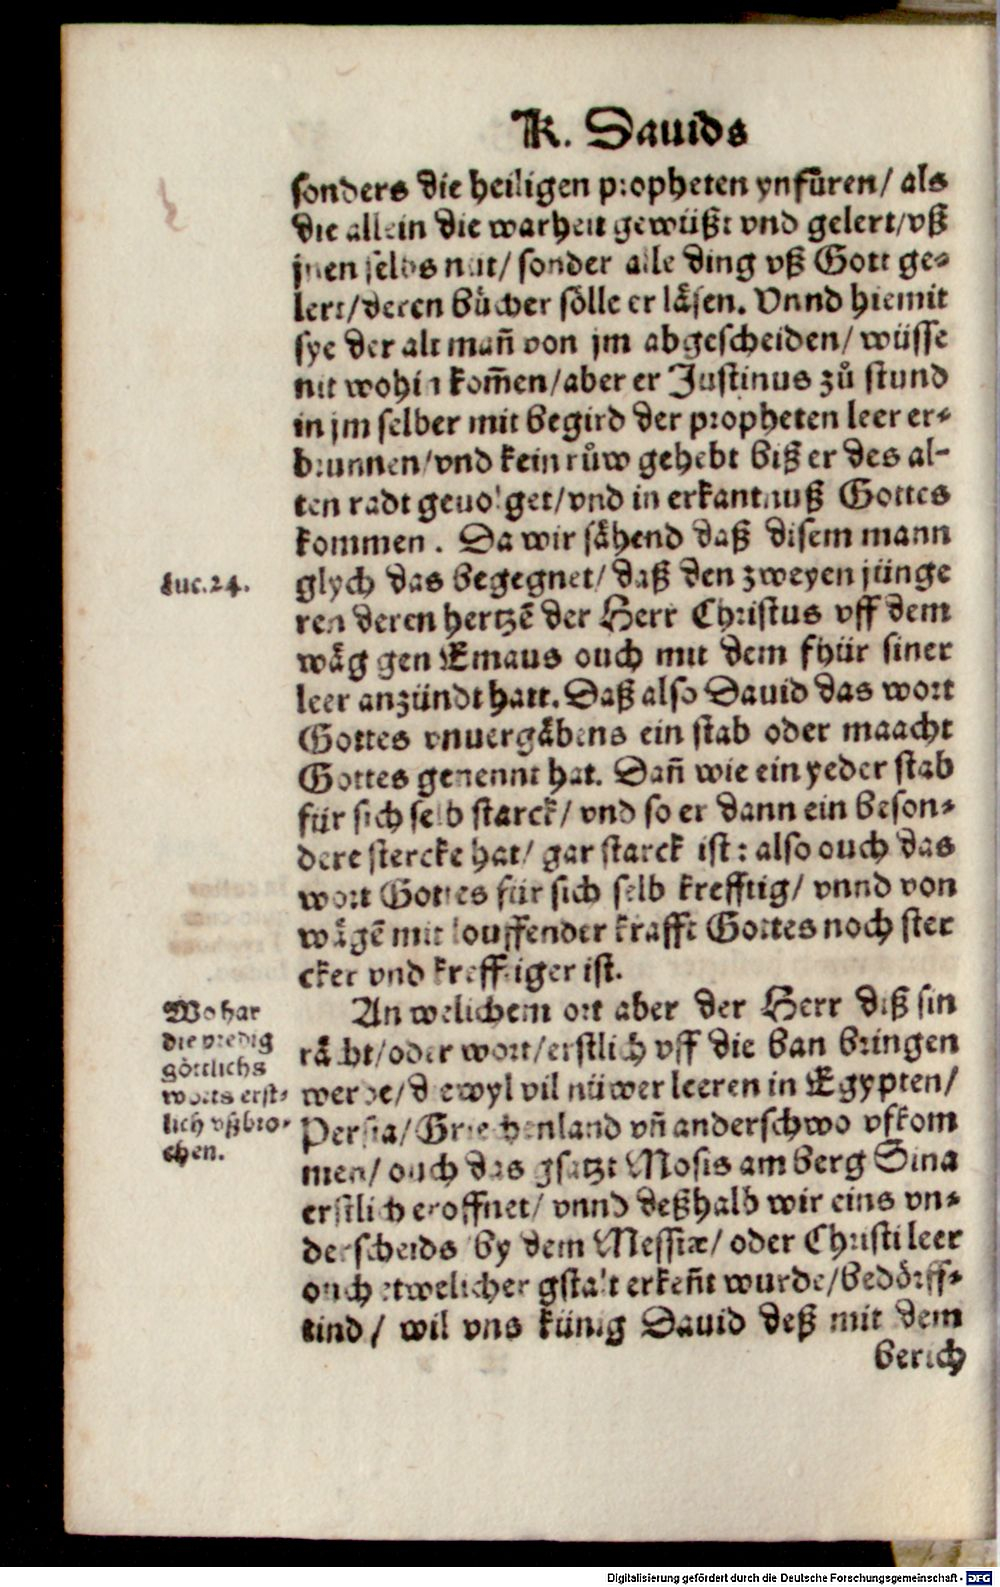 K. Dauids
sonders die heiligen propheten ynfüren/ als
die allein die warheit gewüßt vnd gelert/vß
jnen selbs nüt/ sonder alle ding vß Gott ge-
lert/deren bücher sölle er läsen. Vnnd hiemit
sye der alt mañ von jm abgescheiden/ wüsse
nit wohin kom̃en/aber er Justinus zů stund
in jm selber mit begird der propheten leer er-
brunnen/vnd kein růw gehebt biß er des al-
ten radt geuolget/vnd in erkantnuß Gottes
kommen. Da wir sähend daß disem mann
Luc.24.
glych das begegnet/ daß den zweyen jünge
ren deren hertzẽ der Herr Christus vff dem
wäg gen Emaus ouch mit dem fhür siner
leer anzündt hatt. Daß also Dauid das wort
Gottes vnuergäbens ein stab oder maacht
Gottes genennt hat. Dañ wie ein yeder stab
für sich selb starck/ vnd so er dann ein beson-
dere stercke hat/ gar starck ist: also ouch das
wort Gottes für sich selb krefftig/ vnnd von
wägẽ mit louffender krafft Gottes noch ster
cker vnd krefftiger ist.
Wo har
die predig
göttlichs
worts erst-
lich vßbro-
chen.
An welichem ort aber der Herr diß sin
rächt/oder wort/erstlich vff die ban bringen
werde/diewyl vil nüwer leeren in Egypten/
Persia/ Griechenland vñ anderschwo vfkom
men/ ouch das gsatzt Mosis am berg Sina
erstlich eroffnet/ vnnd deßhalb wir eins vn-
derscheids by dem Messiæ/ oder Christi leer
ouch etwelicher gstalt erkeñt wurde/bedörff-
tind/ wil vns künig Dauid deß mit dem
berich
Digitalisierung gefördert durch die Deutsche Forschungsgemeinschaft - DFG